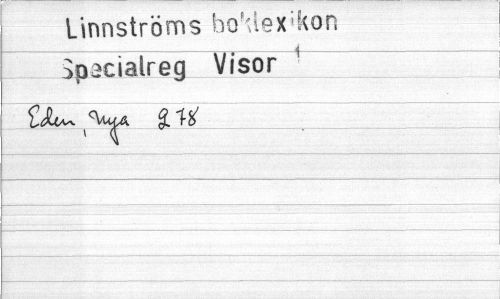 Linnströms boklexikon
Specialreg Visor
Eden, nya 278